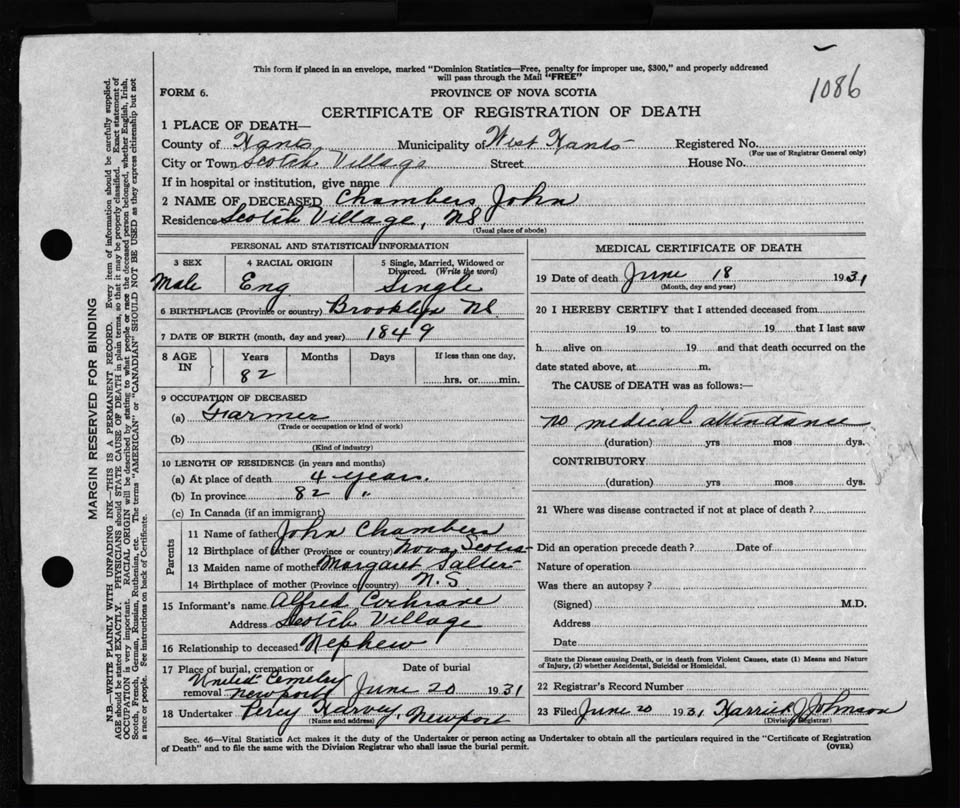 1086
This form if placed in an envelope, marked "Dominion Statistics—Free, penalty for improper use, $300," and properly addressed
will pass through the Mail "FREE"
FORM 6.
PROVINCE OF NOVA SCOTIA
CERTIFICATE OF REGISTRATION OF DEATH
1 PLACE OF DEATH—
County of Hants Municipality of West Hants Registered No.
(For use of Registrar General only)
City or Town Scotch Village Street House No.
If in hospital or institution, give name
2 NAME OF DECEASED Chambers, John
Residence Scotch Village, NS
(Usual place of abode)
PERSONAL AND STATISTICAL INFORMATION
3 SEX
Male
4 RACIAL ORIGIN
Eng
5 Single, Married, Widowed or
Divorced. (Write the word)
Single
6 BIRTHPLACE (Province or country) Brooklyn NS.
7 DATE OF BIRTH (month, day and year) 1849
8 AGE
IN
Years
82
Months
Days
If less than one day,
hrs. or min.
9 OCCUPATION OF DECEASED
(a) Farmer
(Trade or occupation or kind of work)
(b)
(Kind of industry)
10 LENGTH OF RESIDENCE (in years and months)
(a) At place of death 4 years.
(b) In province 82 "
(c) In Canada (if an immigrant)
Parents
11 Name of father John Chambers
12 Birthplace of father (Province or country) Nova Scotia
13 Maiden name of mother Margaret Salter
14 Birthplace of mother (Province or country) N.S
15 Informant's name Alfred Cochrane
Address Scotch Village
16 Relationship to deceased Nephew
17 Place of burial, cremation or
removal
United Cemetery
Newport
Date of burial
June 20 1931
18 Undertaker Percy Harvey, Newport
(Name and address)
MEDICAL CERTIFICATE OF DEATH
19 Date of death June 18 1931
(Month, day and year)
20 I HEREBY CERTIFY that I attended deceased from
19 to 19 that I last saw
h alive on 19 and that death occurred on the
date stated above, at m.
The CAUSE of DEATH was as follows:—
no medical attendance
(duration) yrs mos dys.
CONTRIBUTORY
(duration) yrs. mos dys.
21 Where was disease contracted if not at place of death?
Did an operation precede death? Date of
Nature of operation
Was there an autopsy?
(Signed) M.D.
Address
Date
State the Disease causing Death, or in death from Violent Causes, state (1) Means and Nature
of Injury, (2) whether Accidental, Suicidal or Homicidal.
22 Registrar's Record Number
23 Filed June 20 1931 Harrick J Johnson
(Division Registrar)
Sec. 46—Vital Statistics Act makes it the duty of the Undertaker or person acting as Undertaker to obtain all the particulars required in the "Certificate of Registration
of Death" and to file the same with the Division Registrar who shall issue the burial permit.
(OVER)
MARGIN RESERVED FOR BINDING
N.B.—WRITE PLAINLY WITH UNFADING INK—THIS IS A PERMANENT RECORD. Every item of information should be carefully supplied.
AGE should be stated EXACTLY. PHYSICIANS should STATE CAUSE OF DEATH in plain terms, so that it may be properly classified. Exact statement of
OCCUPATION is very important. RACIAL ORIGIN will be described by stating to what people or race the deceased person belonged, whether English, Irish,
Scotch, French, German, Russian, Ruthenian, etc. The terms "AMERICAN" or "CANADIAN" SHOULD NOT BE USED as they express citizenship but not
a race or people. See instructions on back of Certificate.